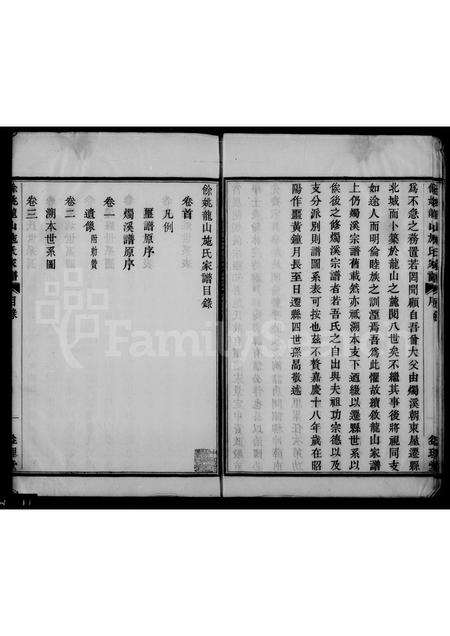 為不急之務置若罔聞顧自吾曾大父由燭溪朝東屋遷縣
北城而卜築於龍山之麓閱八世矣不繼其事後將視同支
如途人而明倫睦族之訓湮焉吾為此懼故續敘龍山家譜
上仍燭溪宗譜舊載然亦祗溯本支下迺綴以遷縣世系以
俟後之修燭溪宗譜者若吾氏之自出與夫祖功宗德以及
支分派別則譜圖系表可按也茲不贅嘉慶十八年歲在昭
陽作噩黃鐘月長至日遷縣四世孫勗敬述
餘姚龍山施氏家譜目錄
卷首
凡例
歷譜原序
燭溪譜原序
卷一
遺像
卷二
溯本世系圖
卷三
餘姚龍山施氏家譜
目錄
FamilyS